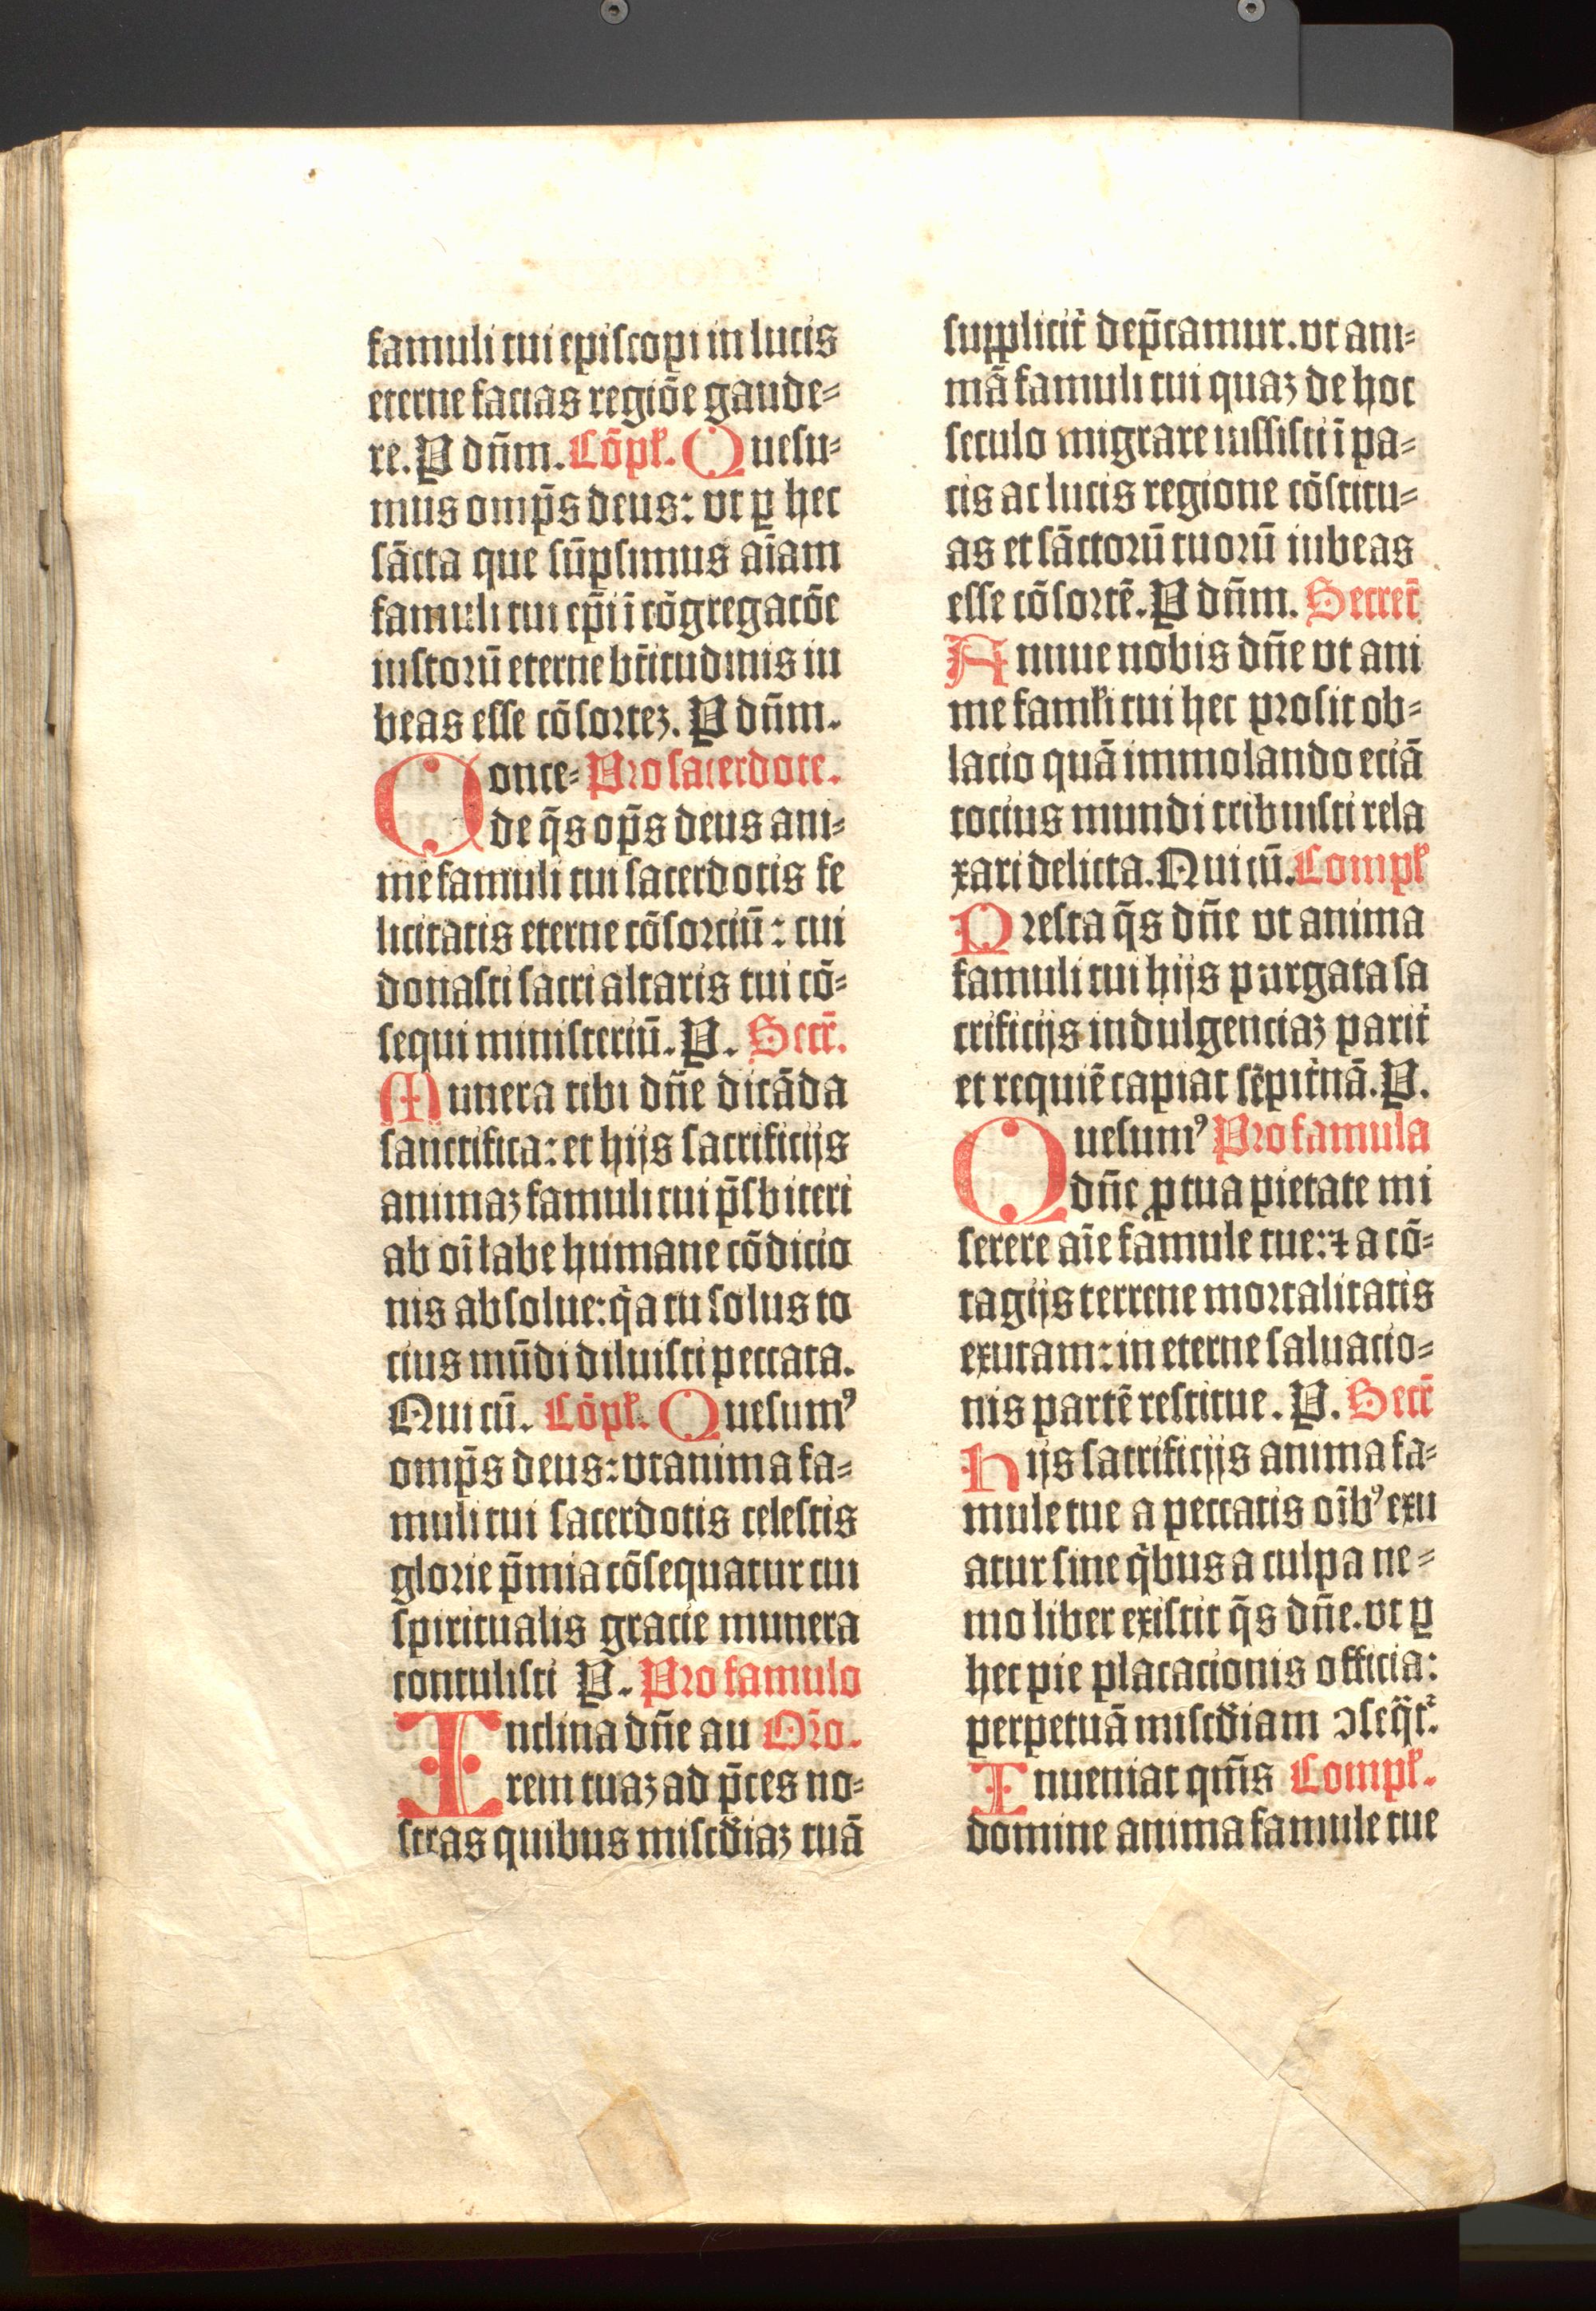 famuli tui episcopi in lucis
eterne facias regiōe gaude⸗
re. P dn̄m. Cōpł. Quesu⸗
mus omp̄s deus: vt ꝑ hec
sācta que sūpsimus aīam
famuli tui ep̄i ī cōgregacōe
iustorū eterne bt̄itudinis iu
beas esse cōsortez. P dn̄m.
Conce⸗ Pro sacerdote.
de q̄s op̄s deus ani⸗
me famuli tui sacerdotis fe
licitatis eterne cōsorciū: cui
donasti sacri altaris tui cō⸗
sequi ministeriū. P. Secr̄.
Munera tibi dn̄e dicāda
sanctifica: et hijs sacrificijs
animaz famuli tui p̄sbiteri
ab oī labe humane cōdicio
nis absolue: q̄a tu solus to
cius mūdi diluisti peccata.
Qui cū. Cōpł. Quesumꝰ
omp̄s deus: vt anima fa⸗
muli tui sacerdotis celestis
glorie p̄mia cōsequatur cui
spiritualis gracie munera
contulisti P. Pro famulo
Inclina dn̄e au Or̄o.
rem tuaz ad p̄ces no⸗
stras quibus miscd̄iaz tuā
supplicit̄ dep̄camur. vt ani⸗
mā famuli tui quaz de hoc
seculo migrare iussisti ī pa⸗
cis ac lucis regione cōstitu⸗
as et sāctorū tuorū iubeas
esse cōsortē. P dn̄m. Secret̄
Annue nobis dn̄e vt ani
me famłi tui hec prosit ob⸗
lacio quā immolando eciā
tocius mundi tribuisti rela
xari delicta. Qui cū. Compł
Presta q̄s dn̄e vt anima
famuli tui hijs purgata sa
crificijs indulgenciaz parit̄
et requiē capiat sēpit̄nā. P.
Quesumꝰ Pro famula
dn̄e ꝓ tua pietate mi
serere aīe famule tue: ⁊ a cō⸗
tagijs terrene mortalitatis
exutam: in eterne saluacio⸗
nis partē restitue. P. Secr̄
Hijs sacrificijs anima fa⸗
mule tue a peccatis oībꝰ exu
atur sine q̄bus a culpa ne⸗
mo liber existit q̄s dn̄e. vt ꝑ
hec pie placacionis officia:
perpetuā miscd̄iam ↄseq̄t᷑.
Inueniat qm̄s Compł.
domine anima famule tue